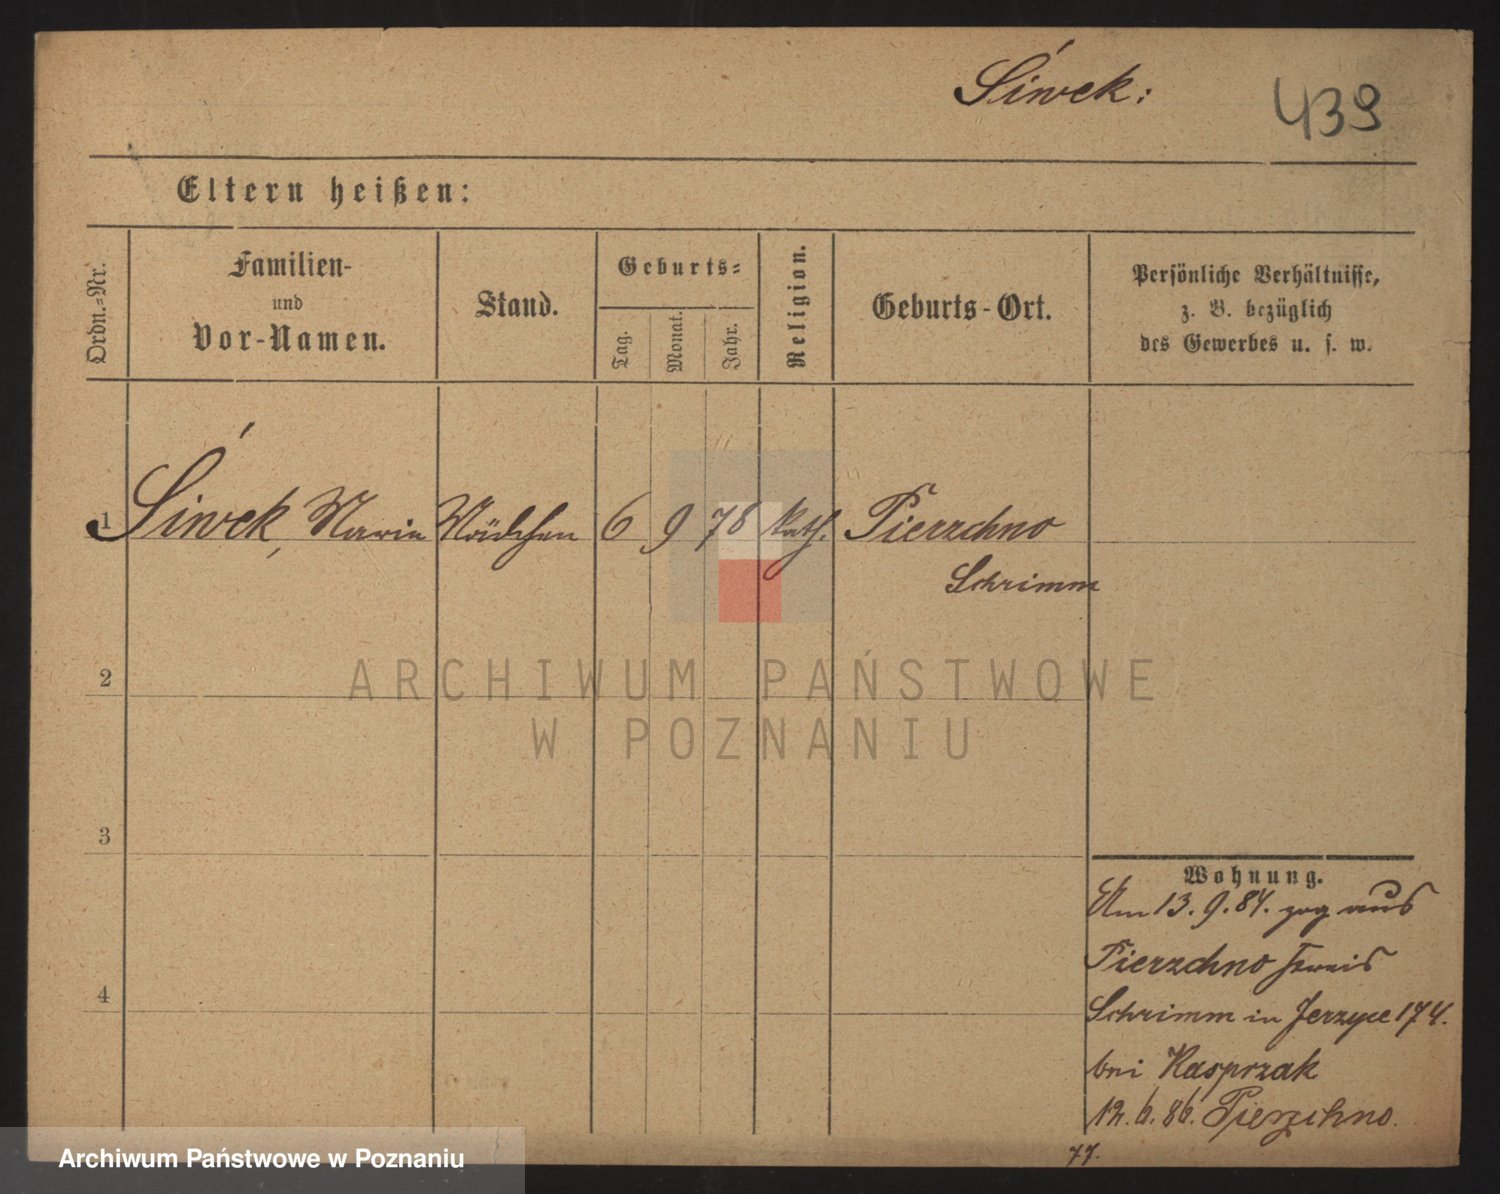 Siwek:
439
Eltern heißen:
Ordn.-Nr.
Familien-
und
Vor-Namen.
Stand.
Geburts-
Tag.
Monat.
Jahr.
Religion.
Geburts-Ort.
Persönliche Verhältnisse,
z. B. bezüglich
des Gewerbes u. s. w.
1 Siwek, Marie Mädchen 6 9 78 kath. Pierzchno
Schrimm
2
3
4
Wohnung.
Am 13. 9. 84. zog aus
Pierzchno Kreis
Schrimm in Jerzyce 174.
bei Kasprzak
12. 6. 86. Pierzchno.
77.
ARCHIWUM PAŃSTWOWE
W POZNANIU
Archiwum Państwowe w Poznaniu